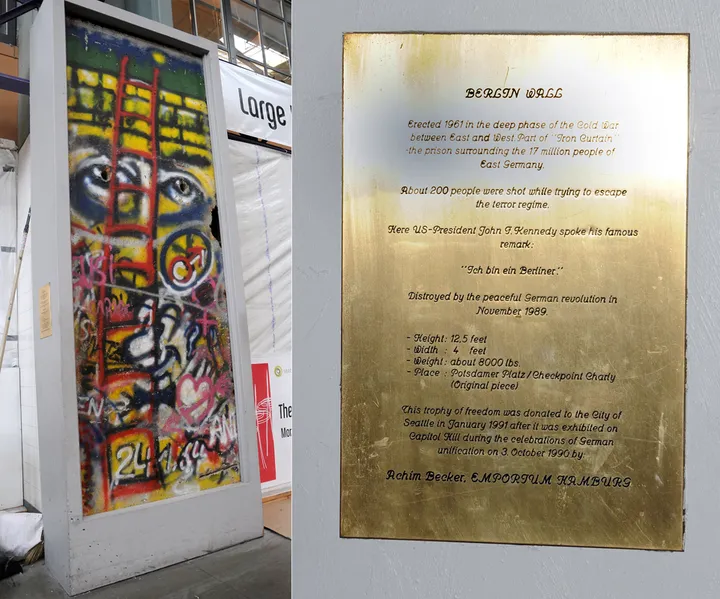 Large
The
Mor
24 1.84
AN
EN
BERLIN WALL
Erected 1961 in the deep phase of the Cold War
between East and West Part of "Iron Curtain"
-the prison surrounding the 17 million people of
East Germany.
About 200 people were shot while trying to escape
the terror regime.
Here US-President John F. Kennedy spoke his famous
remark:
"Ich bin ein Berliner."
Distroyed by the peaceful German revolution in
November 1989.
- Height: 12,5 feet
- Width : 4 feet
- Weight: about 8000 lbs.
- Place : Potsdamer Platz/Checkpoint Charly
(Original piece)
This trophy of freedom was donated to the City of
Seattle in January 1991 after it was exhibited on
Capitol Hill during the celebrations of German
unification on 3. October 1990 by:
Achim Becker, EMPORIUM HAMBURG